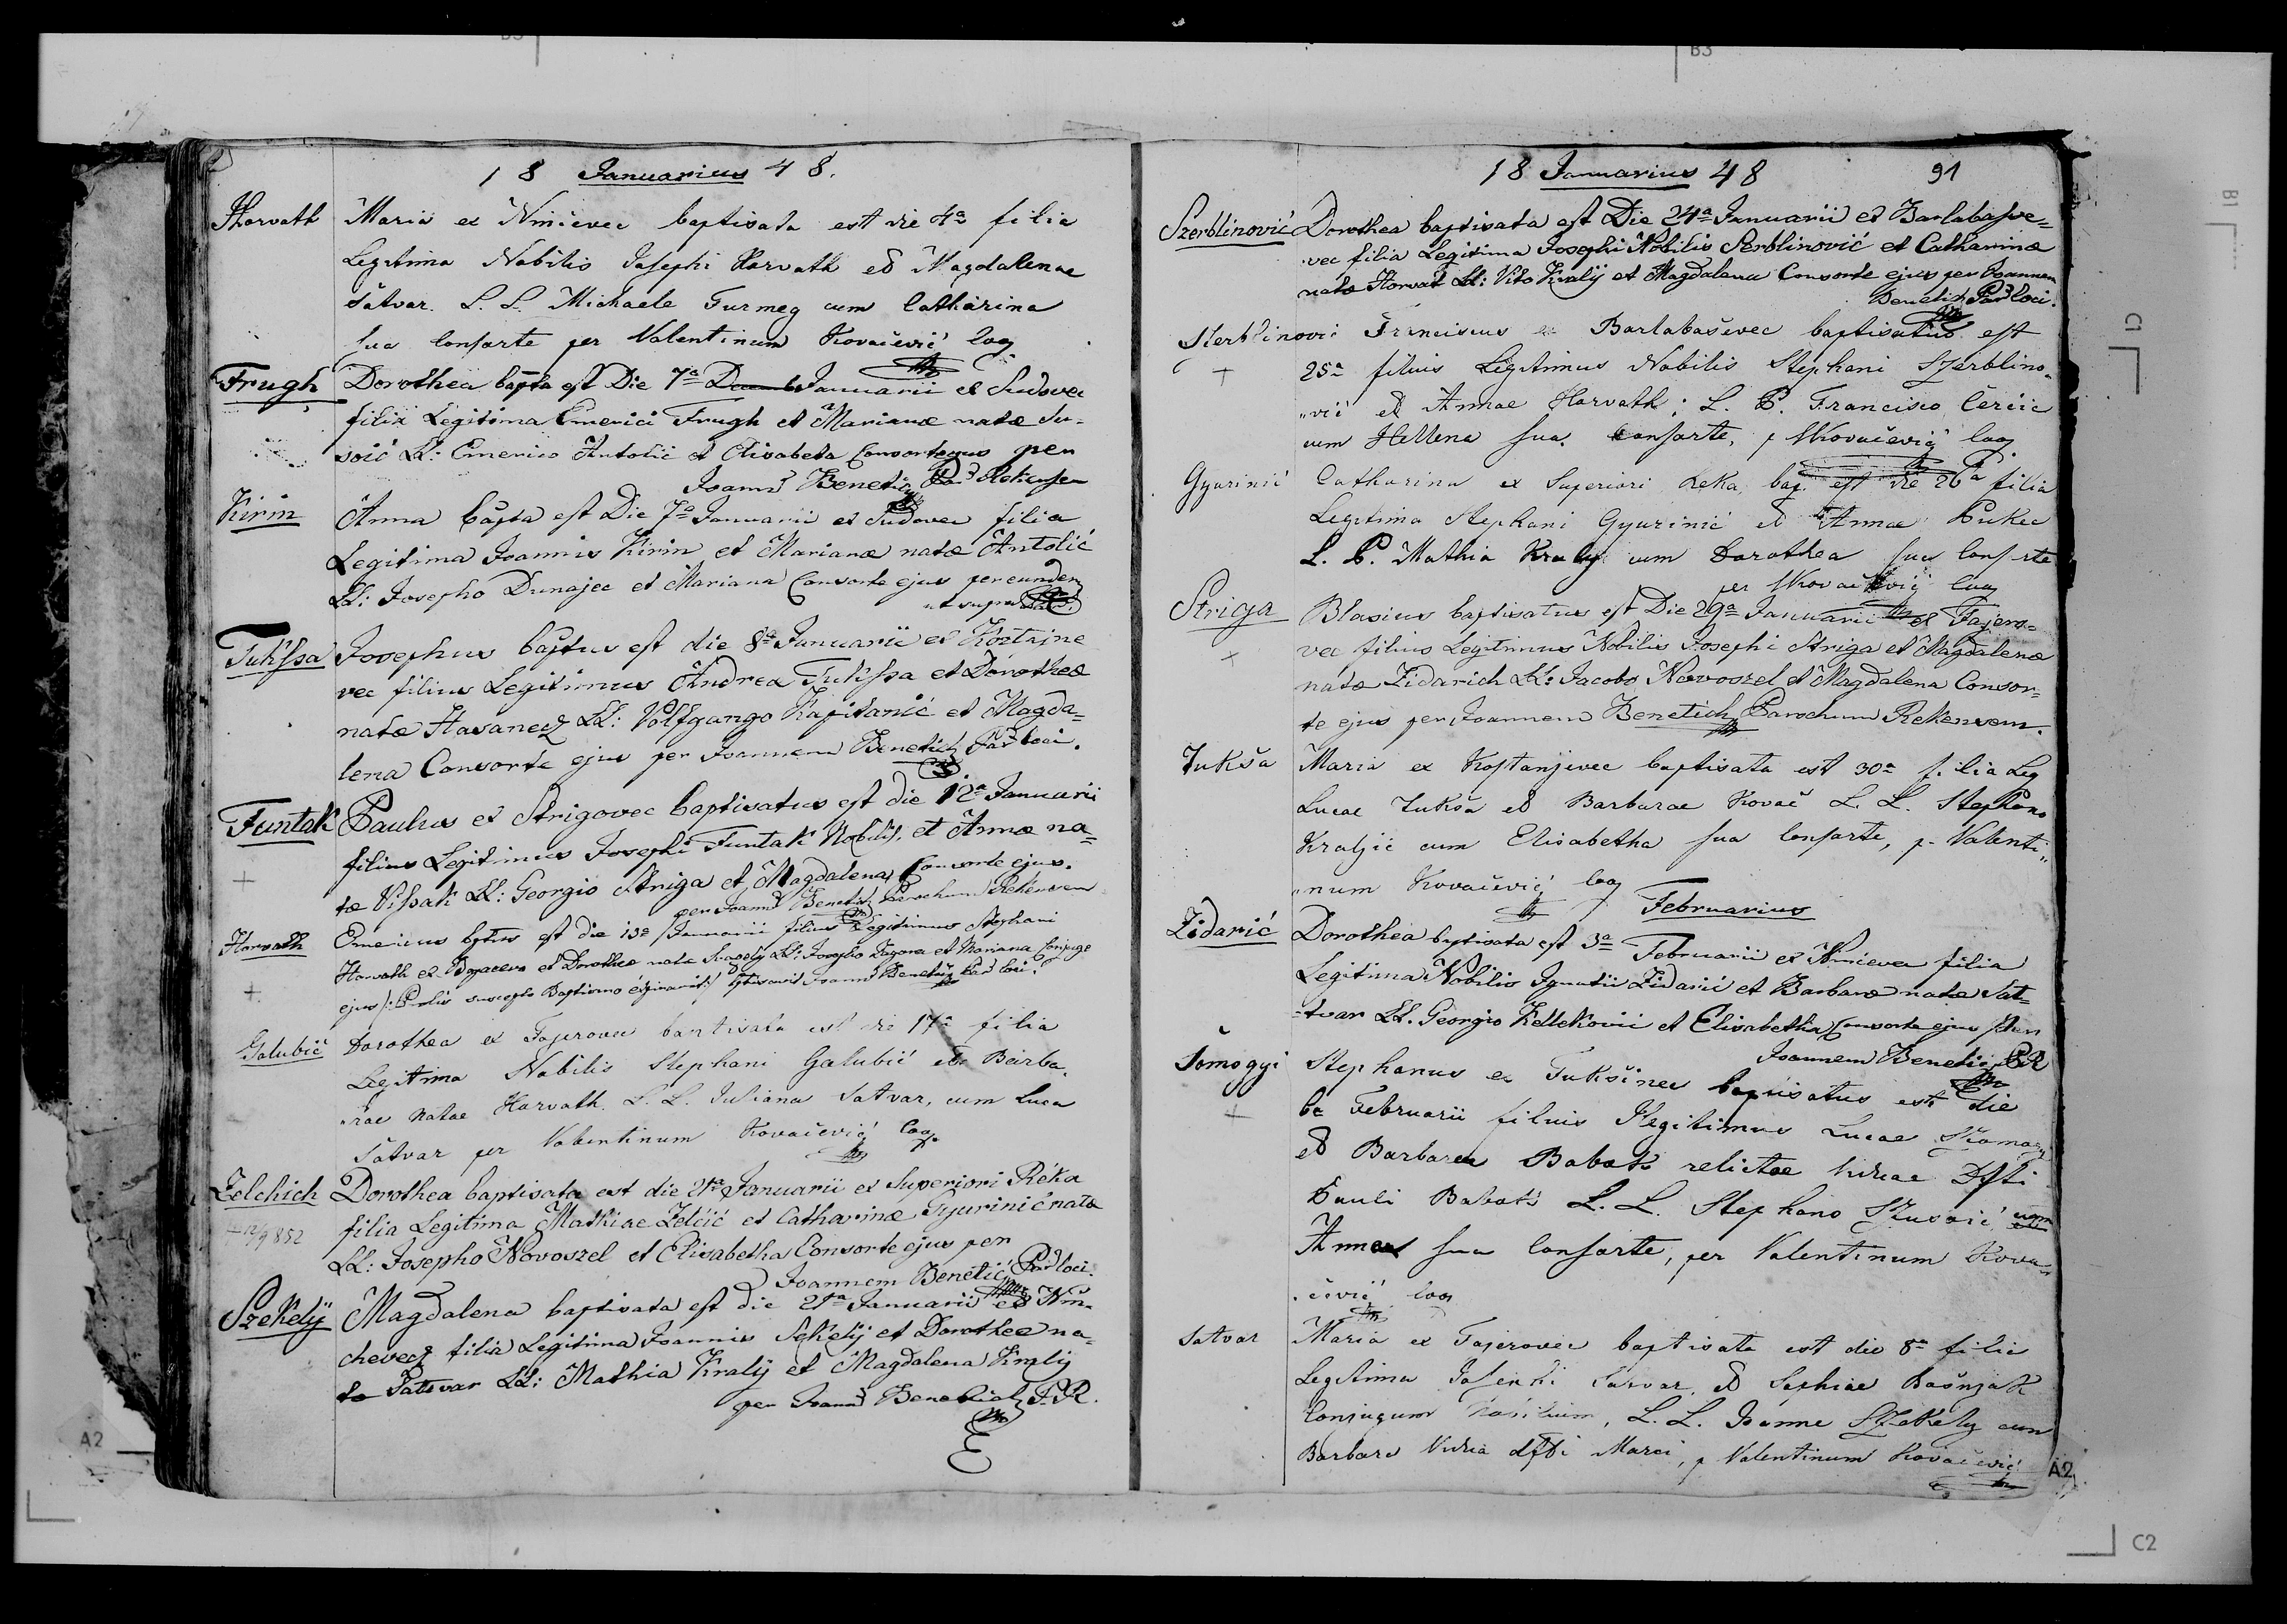 B3
B3
B1
C1
18 Januarius 48.
Horvath Maria ex Ninčevec baptisata est die 4a filia
Legitima Nobilis Josephi Horvath et Magdalenae
Šatvar. L. L. Michaele Furmeg cum Catharina
sua Consorte per Valentinum Kovačević Coop
Frugh Dorothea bapta est Die 7a Januarii ex Sudovec
filia Legitima Emerici Frugh et Marianæ natæ Su-
soić LL: Emerico Antolić et Elisabeta Consorte ejus per
Joann Benetić Par Rekensem
Kirin Anna bapta est Die 7a Januarii ex Sudovec filia
Legitima Joannis Kirin et Marianæ natæ Antolić
LL: Josepho Dunajec et Mariana Consorte ejus per eundem
ut supra
Tukssa Josephus baptus est die 8a Januarii ex Kostajne
vec filius Legitimus Andrea Tukssa et Dorotheæ
natæ Hasanecz LL: Volfgango Kapitanić et Magda=
lena Consorte ejus per Joannem Benetich Par loci.
Funtak Paulus ex Strigovec baptisatus est die 12a Januarii
filius Legitimus Josephi Funtak Nobilis, et Annæ na=
+ tæ Vissak LL: Georgio Striga et Magdalena Consorte ejus.
per Joann Benetich Parochum Rekensem
Horvath Emericus bptus est die 13a Januarii filius Legitimus Stephani
Horvath ex et Dorotheæ natæ LL: Josepho Zagorec et Mariana Conjuge
+ ejus /: Prolis suscepto Baptismo :/ Joann Benetich Par loci.
Golubić Dorothea ex Fajerovec baptisata est die 17a filia
Legitima Nobilis Stephani Golubić et Barba-
rae natae Horvath. L. L. Juliana Satvar, cum Luca
Šatvar per Valentinum Kovačević Coop.
Zelchich Dorothea baptisata est die 21a Januarii ex Superiori Réka
+ 12/9 852 filia Legitima Mathiae Zelčić et Catharinæ Gjurinić natæ
LL: Josepho Novoszel et Elisabetha Consorte ejus per
Joannem Benetić Par loci.
Szekely Magdalena baptisata est die 21a Januarii ex Nin-
chevecz filia Legitima Joannis Sekely et Dorotheæ na=
tæ Satvar LL: Mathia Kraly et Magdalena Kraly
per Joann Benetich P. R.
18 Januarius 48 91
Szerblinović Dorothea baptisata est Die 24a Januarii ex Barlabasse=
vec filia Legitima Josephi Nobilis Serblinović et Catharinæ
natæ Horvat LL: Vito Kraly et Magdalena Consorte ejus per Joannem
Benetich Par loci.
Szerblinović Franciscus ex Barlabaševec baptisatus est
+ 25a filius Legitimus Nobilis Stephani Szerblino-
"vić et Annae Horvath; L. P. Francisco Čerčic
cum Hellena sua Consorte, p VKovačević Coop
Gyurinić Catharina ex Superiori Reka, bap. est die 26a filia
Legitima Stephani Gyurinić et Annae Pukec
L. P. Mathia Kraly cum Dorothea sua Consorte
per VKovačević Coop
Striga Blasius baptisatus est Die 29a Januarii ex Fajero=
+ vec filius Legitimus Nobilis Josephi Striga et Magdalenæ
natæ Zidarich LL: Jacobo Novoszel et Magdalena Consor=
te ejus per Joannem Benetich Parochum Rekensem.
Tukša Maria ex Kostanjevec baptisata est 30a filia Leg
Lucae Tukša et Barbarae Kovač L. L. Stephano
Kraljić cum Elisabetha sua Consorte, p. Valenti"
"num Kovačević Coop
Februarius
Zidarić Dorothea baptisata est 3a Februarii ex Ninčevec filia
Legitima Nobilis Ignatii Zidarić et Barbaræ natæ Sat=
=tvar LL. Georgio Zellekovic et Elisabetha Consorte ejus per
Joannem Benetić P R
Šomogyi Stephanus ex Tukšinec baptisatus est die
+ 6a Februarii filius Ilegitimus Lucae
et Barbarae Babak relictae Viduae Dfti
Pauli Babak L. L. Stephano cum
Anna sua Consorte, per Valentinum Kova-
čević Coop
Satvar Maria ex Fajerovec baptisata est die 8a filia
Legitima Josephi Satvar, et Sophiae Bošnjak
Conjugum Nobilium, L. L. Joanne Szekely cum
Barbara Vidua dfti Marci, p Valentinum Kovačević
A2
A2
C2